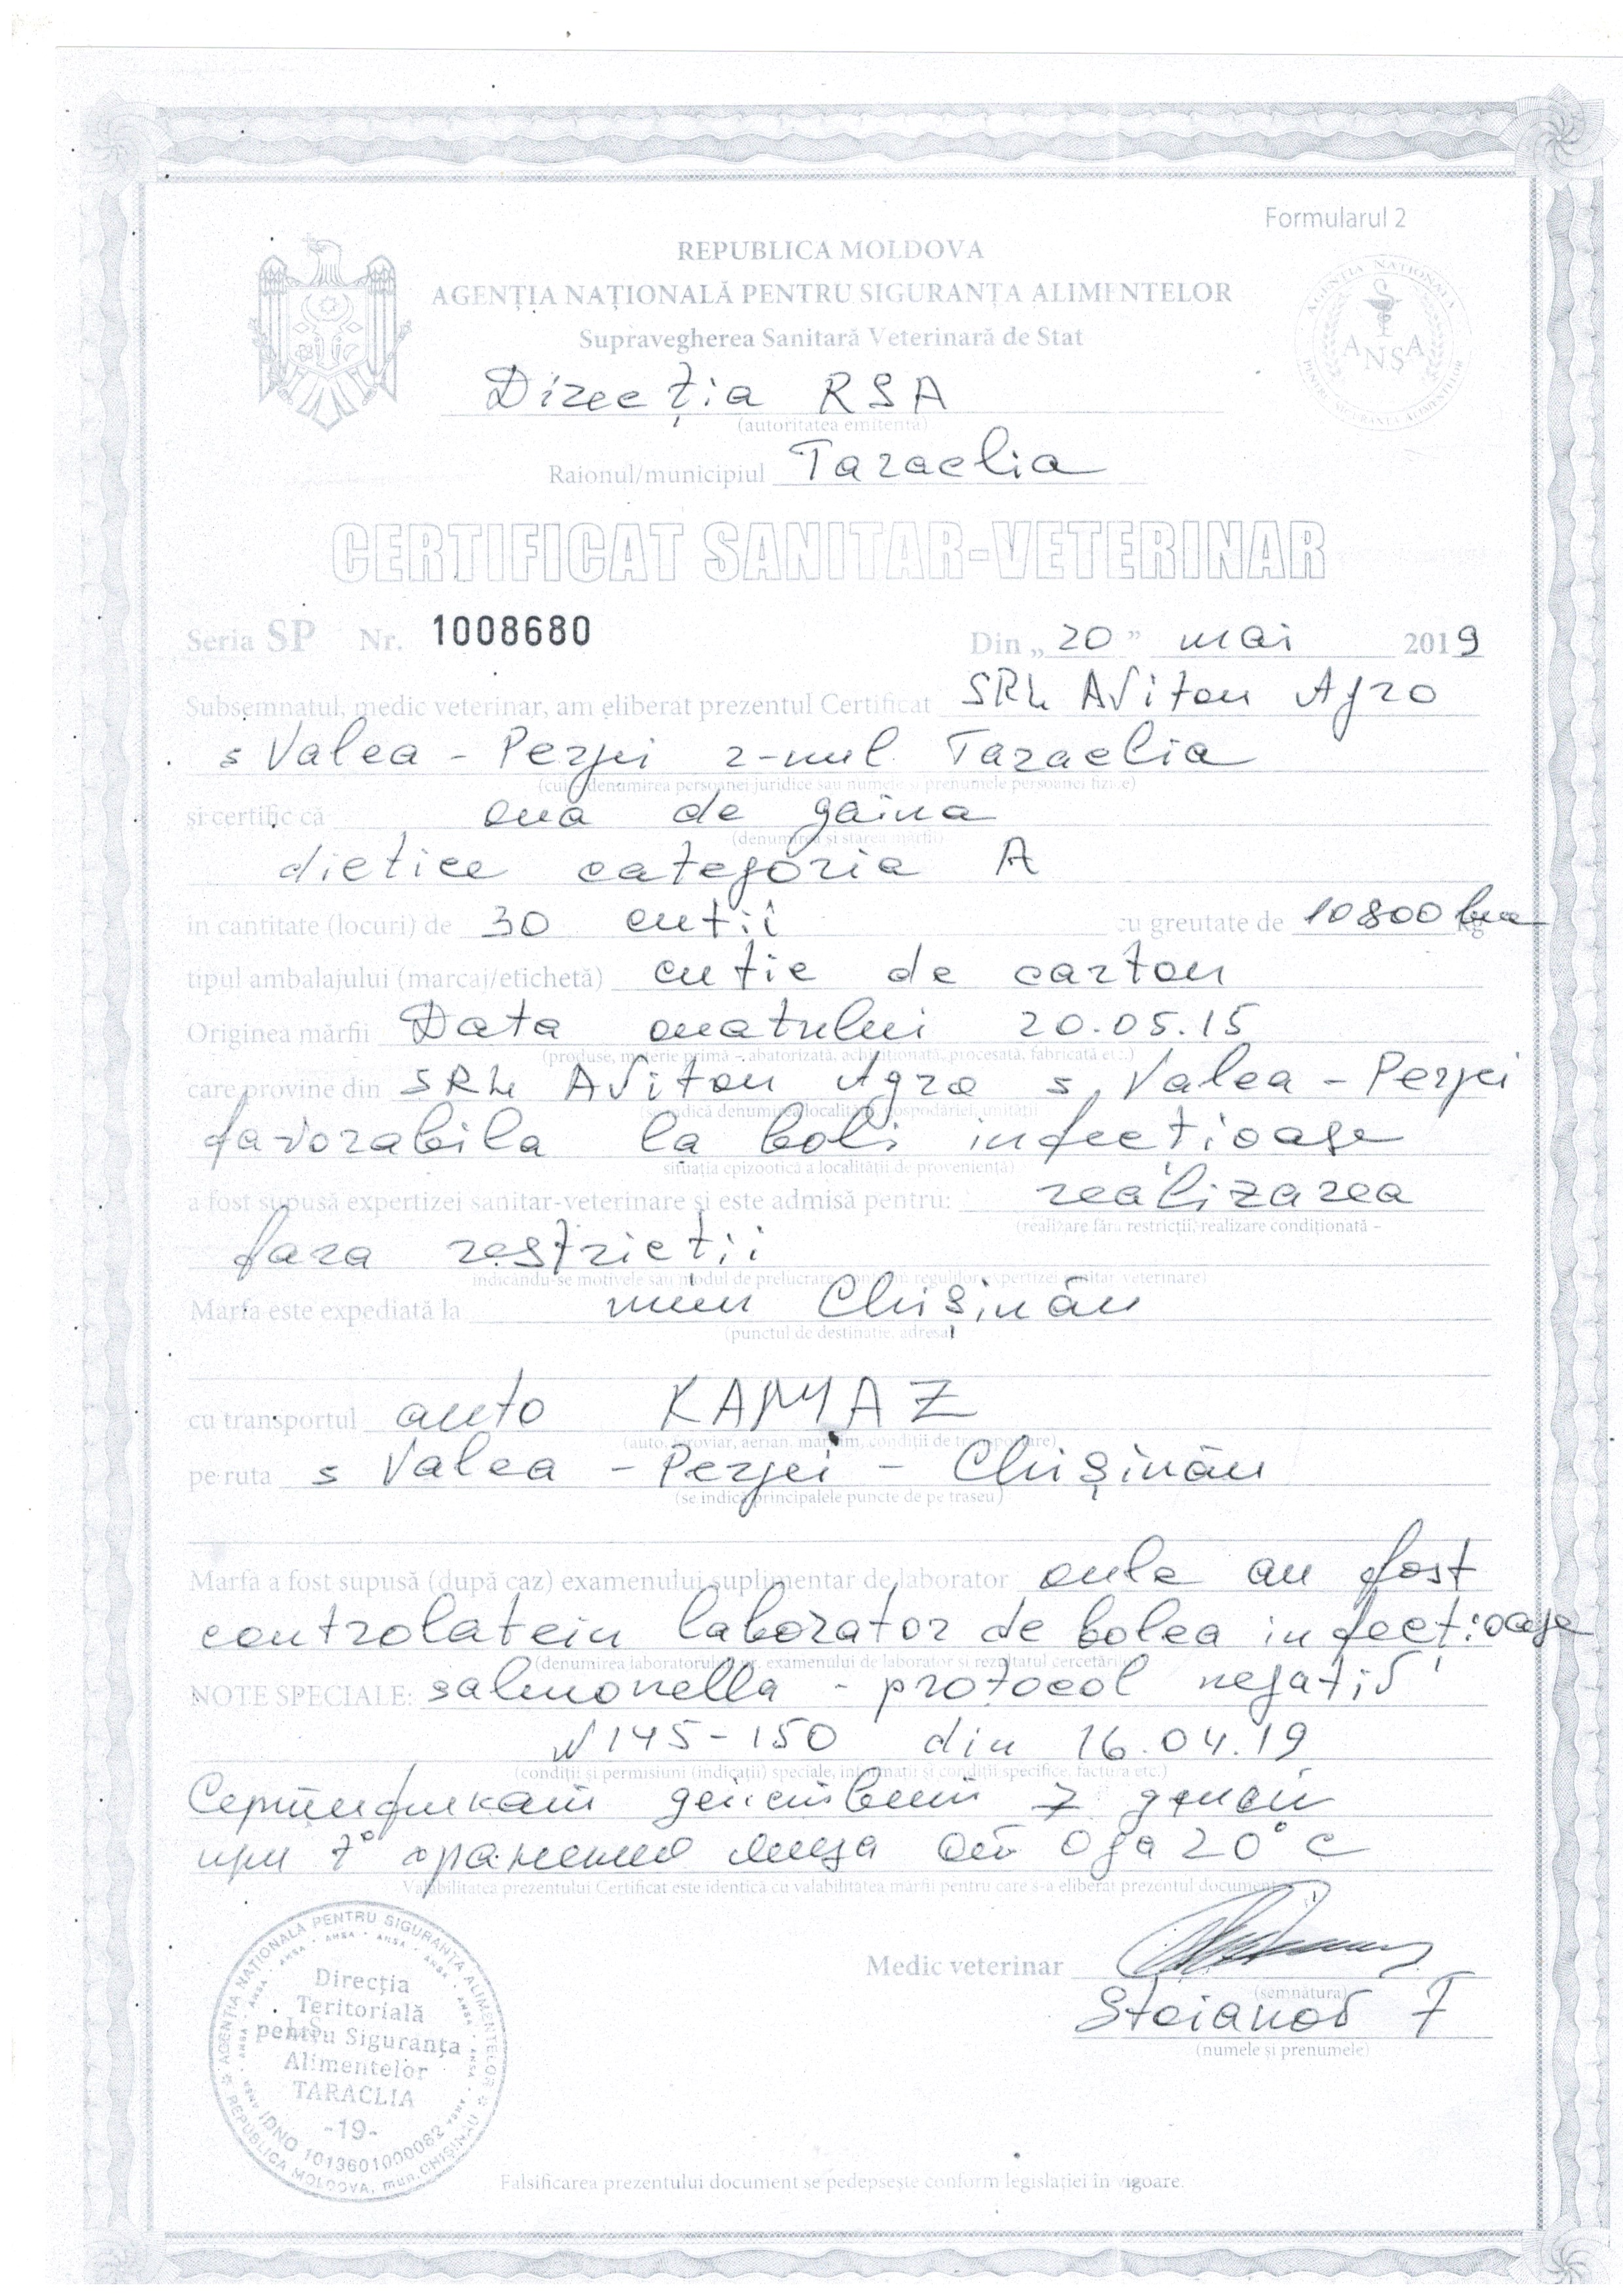 Formularul 2
REPUBLICA MOLDOVA
AGENȚIA NAȚIONALĂ PENTRU SIGURANȚA ALIMENTELOR
Supravegherea Sanitară Veterinară de Stat
Direcția RSA
(autoritatea emitentă)
Raionul/municipiul Taraclia
AGENȚIA NAȚIONALĂ PENTRU SIGURANȚA ALIMENTELOR
ANSA
CERTIFICAT SANITAR-VETERINAR
Seria SP Nr. 1008680 Din „20” mai 2019
Subsemnatul, medic veterinar, am eliberat prezentul Certificat SRL Aviton Agro
s Valea - Perjei r-nul Taraclia
(cui – denumirea persoanei juridice sau numele și prenumele persoanei fizice)
și certific că oua de gaina
(denumirea și starea mărfii)
dietice categoria A
în cantitate (locuri) de 30 cutii cu greutate de 10800 kg
tipul ambalajului (marcaj/etichetă) cutie de carton
Originea mărfii Data ouatului 20.05.15
(produse, materie primă – abatorizată, achiziționată, procesată, fabricată etc.)
care provine din SRL Aviton Agro s, Valea - Perjei
(se indică denumirea localității, gospodăriei, unității)
favorabila la boli infecțioase
situația epizootică a localității de proveniență)
a fost supusă expertizei sanitar-veterinare și este admisă pentru: realizarea
(realizare fără restricții, realizare condiționată –
fara restrictii
indicându-se motivele sau modul de prelucrare, conform regulilor expertizei sanitar-veterinare)
Marfa este expediată la mun Chișinău
(punctul de destinație, adresa)
cu transportul auto KAMAZ
(auto, feroviar, aerian, maritim, condiții de transportare)
pe ruta s Valea - Perjei - Chișinău
(se indică principalele puncte de pe traseu)
Marfa a fost supusă (după caz) examenului suplimentar de laborator oule au fost
controlatein laborator de bolea infecțioase
(denumirea laboratorului, nr. examenului de laborator și rezultatul cercetărilor)
NOTE SPECIALE: salmonella - protocol negativ
N 145-150 din 16.04.19
(condiții și permisiuni (indicații) speciale, informații și condiții specifice, factura etc.)
Сертификат действит 7 дней
при t° хранению яйца от 0 до 20° C
Valabilitatea prezentului Certificat este identică cu valabilitatea mărfii pentru care s-a eliberat prezentul document
Medic veterinar
(semnătura)
Stoianov F
(numele și prenumele)
AGENȚIA NAȚIONALĂ PENTRU SIGURANȚA ALIMENTELOR
REPUBLICA MOLDOVA, mun. CHIȘINĂU
IDNO 1013601000082
Direcția
Teritorială
pentru Siguranța
Alimentelor
TARACLIA
-19-
Falsificarea prezentului document se pedepsește conform legislației în vigoare.